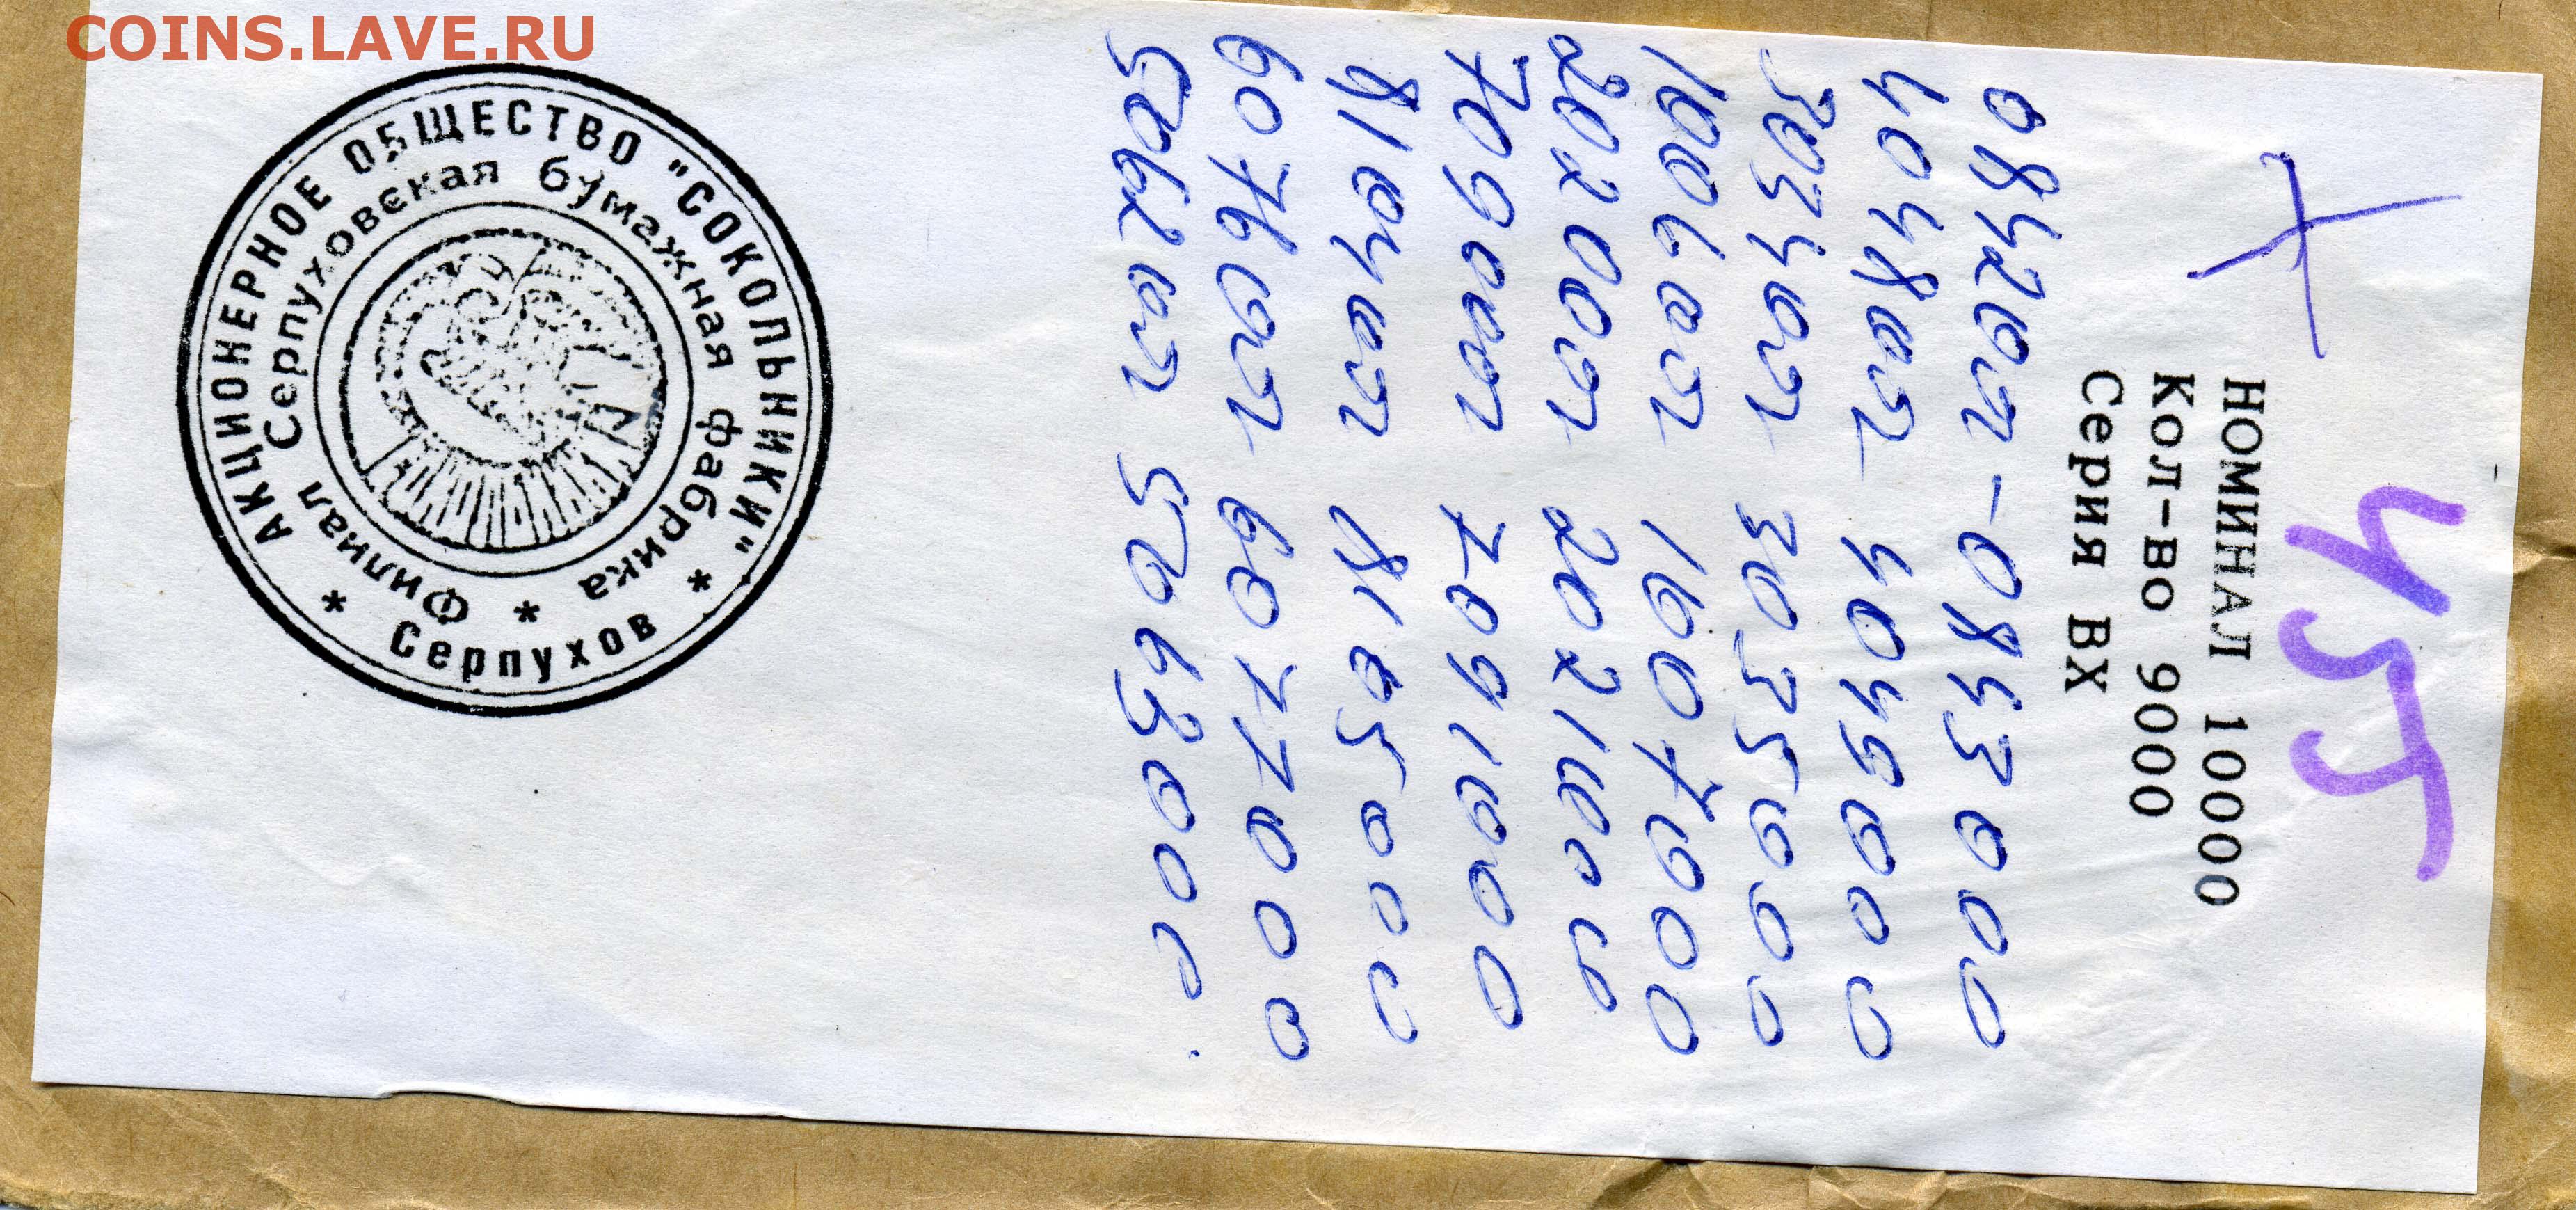 COINS.LAVE.RU
455
НОМИНАЛ 10000
Кол-во 9000
Серия ВХ
0842001 - 0843000
4048001 4049000
3034001 3035000
1006001 1007000
2020001 2021000
7090001 7091000
8104001 8105000
6076001 6077000
5062001 5063000
АКЦИОНЕРНОЕ ОБЩЕСТВО "СОКОЛЬНИКИ"
* Серпухов *
Филиал Серпуховская бумажная фабрика *